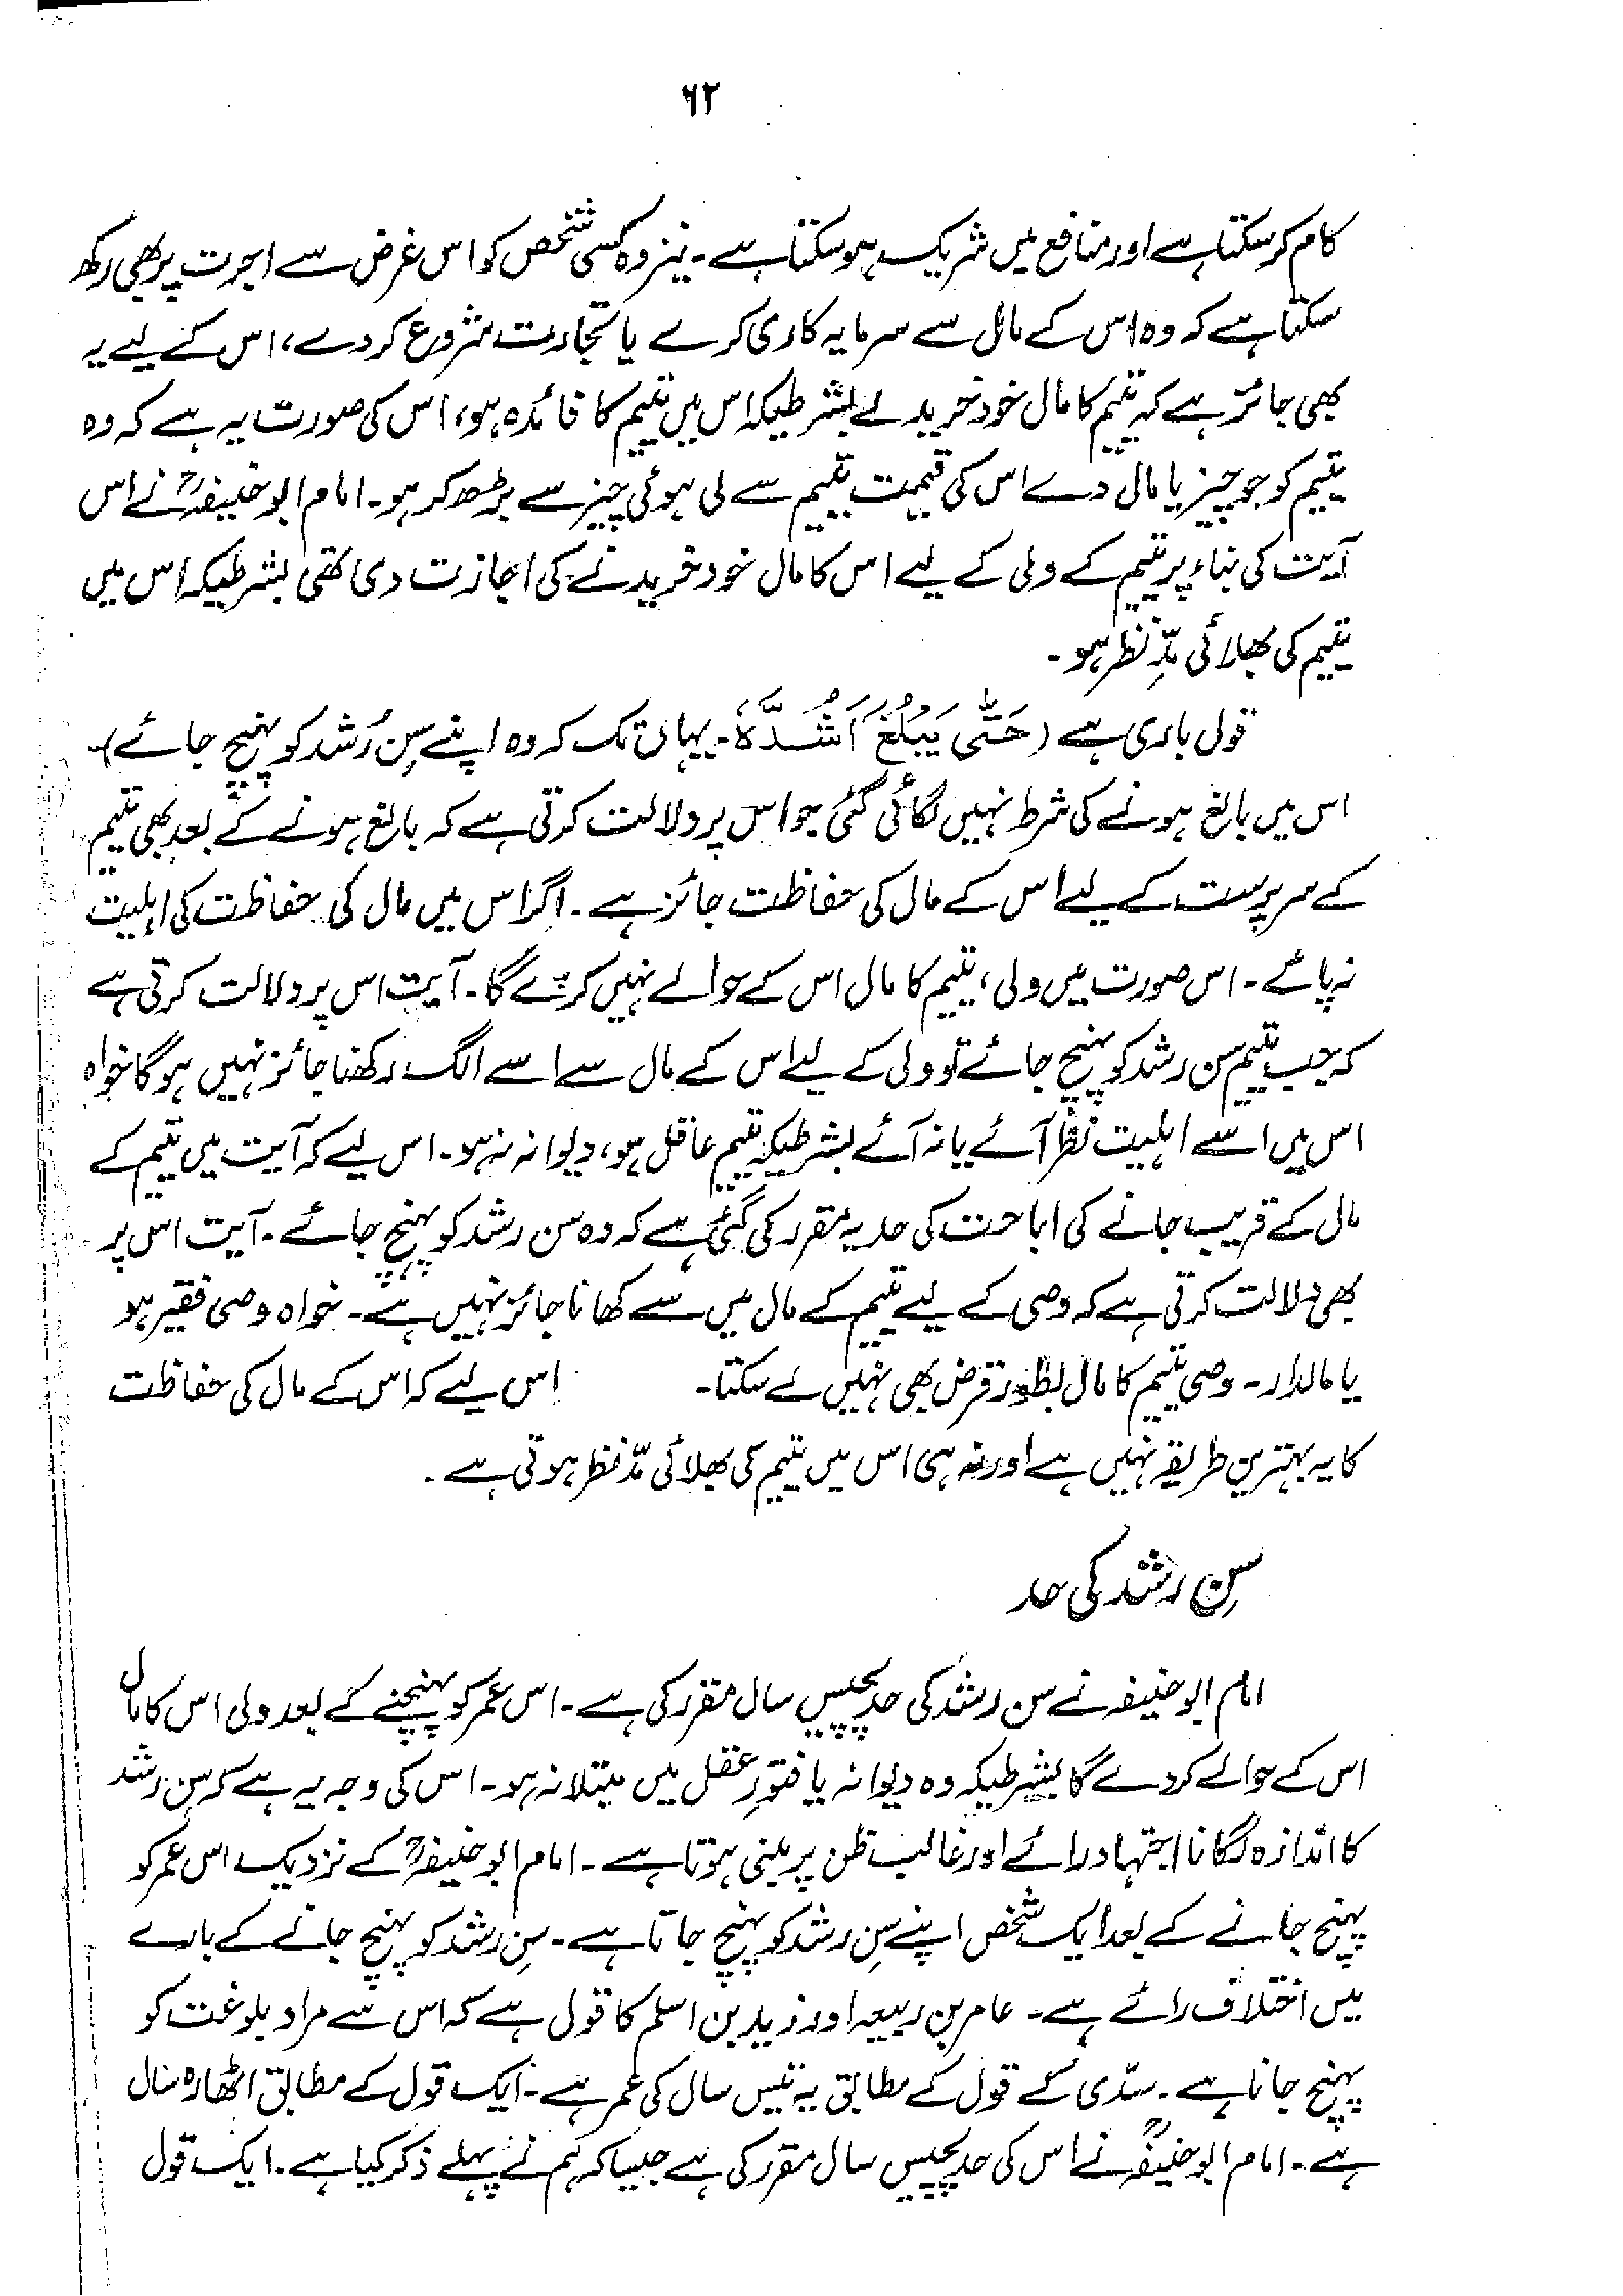 ٦٢
کام کر سکتا ہے اور منافع میں شریک ہو سکتا ہے۔ نیز وہ کسی شخص کو اس غرض سے اجرت پر بھی رکھ
سکتا ہے کہ وہ اس کے مال سے سرمایہ کاری کرے یا تجارت شروع کر دے، اس کے لیے یہ
بھی جائز ہے کہ یتیم کا مال خود خرید لے بشرطیکہ اس میں یتیم کا فائدہ ہو، اس کی صورت یہ ہے کہ وہ
یتیم کو جو چیز یا مال دے اس کی قیمت یتیم سے لی ہوئی چیز سے بڑھ کر ہو۔ امام ابو حنیفہؒ نے اس
آیت کی بناء پر یتیم کے ولی کے لیے اس کا مال خود خریدنے کی اجازت دی تھی بشرطیکہ اس میں
یتیم کی بھلائی مدِّ نظر ہو۔
قول باری ہے (حَتّٰى يَبْلُغَ اَشُدَّهٗ۔ یہاں تک کہ وہ اپنے سِن رُشد کو پہنچ جائے)۔
اس میں بالغ ہونے کی شرط نہیں لگائی گئی جو اس پر دلالت کرتی ہے کہ بالغ ہونے کے بعد بھی یتیم
کے سرپرست کے لیے اس کے مال کی حفاظت جائز ہے۔ اگر اس میں مال کی حفاظت کی اہلیت
نہ پائے۔ اس صورت میں ولی، یتیم کا مال اس کے حوالے نہیں کرے گا۔ آیت اس پر دلالت کرتی ہے
کہ جب یتیم سن رشد کو پہنچ جائے تو ولی کے لیے اس کے مال سے اسے الگ رکھنا جائز نہیں ہوگا خواہ
اس میں اسے اہلیت نظر آئے یا نہ آئے بشرطیکہ یتیم عاقل ہو، دیوانہ نہ ہو۔ اس لیے کہ آیت میں یتیم کے
مال کے قریب جانے کی اباحت کی حد یہ مقرر کی گئی ہے کہ وہ سن رشد کو پہنچ جائے۔ آیت اس پر
بھی دلالت کرتی ہے کہ وصی کے لیے یتیم کے مال میں سے کھانا جائز نہیں ہے۔ خواہ وصی فقیر ہو
یا مالدار۔ وصی یتیم کا مال بطور قرض بھی نہیں لے سکتا۔ اس لیے کہ اس کے مال کی حفاظت
کا یہ بہترین طریقہ نہیں ہے اور نہ ہی اس میں یتیم کی بھلائی مدّ نظر ہوتی ہے۔
سِن رشد کی حد
امام ابو حنیفہ نے سن رشد کی حد پچیس سال مقرر کی ہے۔ اس عمر کو پہنچنے کے بعد ولی اس کا مال
اس کے حوالے کر دے گا بشرطیکہ وہ دیوانہ یا فتورِ عقل میں مبتلا نہ ہو۔ اس کی وجہ یہ ہے کہ سِن رشد
کا اندازہ لگانا اجتہاد رائے اور غالب ظن پر مبنی ہوتا ہے۔ امام ابو حنیفہؒ کے نزدیک اس عمر کو
پہنچ جانے کے بعد ایک شخص اپنے سِن رشد کو پہنچ جاتا ہے۔ سِن رشد کو پہنچ جانے کے بارے
میں اختلاف رائے ہے۔ عامر بن ربیعہ اور زید بن اسلم کا قول ہے کہ اس سے مراد بلوغت کو
پہنچ جانا ہے۔ سدّی کے قول کے مطابق یہ تیس سال کی عمر ہے۔ ایک قول کے مطابق اٹھارہ سال
ہے۔ امام ابو حنیفہؒ نے اس کی حد پچیس سال مقرر کی ہے جیسا کہ ہم نے پہلے ذکر کیا ہے۔ ایک قول